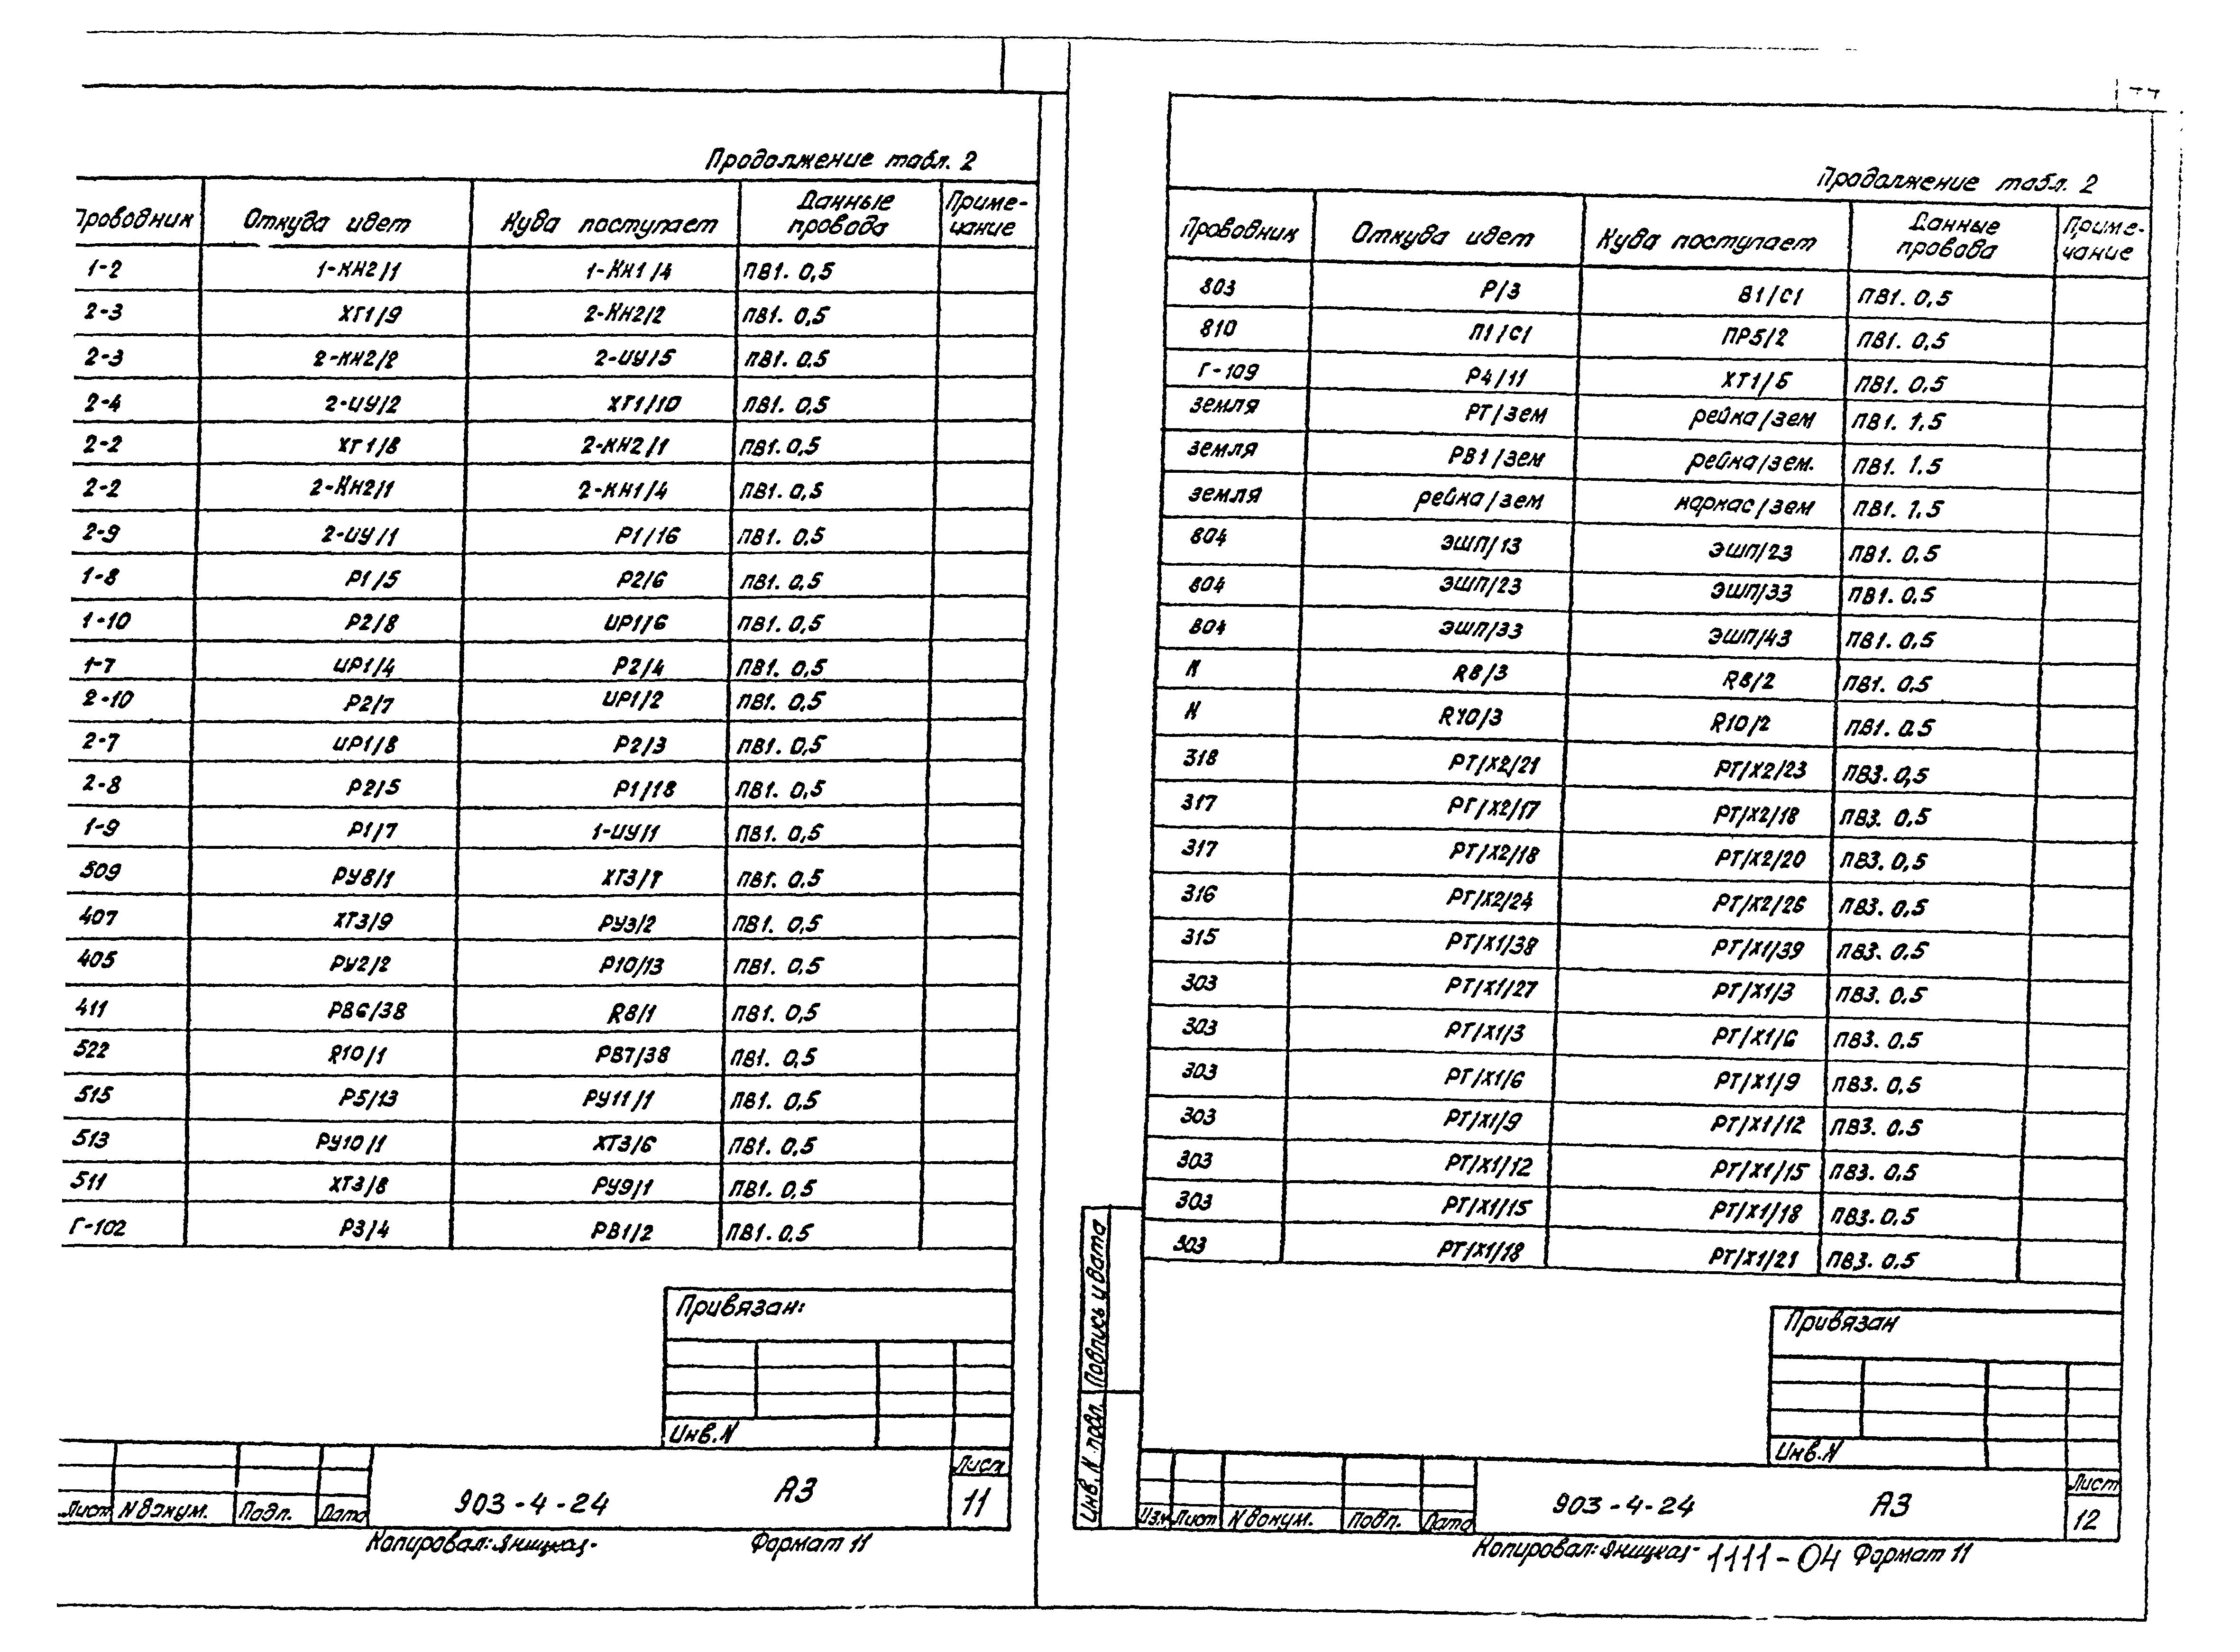 Продолжение табл. 2
Проводник Откуда идет Куда поступает Данные провода Примечание
1-2 1-КН2/1 1-КН1/4 ПВ1. 0,5
2-3 ХТ1/9 2-КН2/2 ПВ1. 0,5
2-3 2-КН2/2 2-ИУ/5 ПВ1. 0.5
2-4 2-ИУ/2 ХТ1/10 ПВ1. 0,5
2-2 ХТ1/8 2-КН2/1 ПВ1. 0,5
2-2 2-КН2/1 2-КН1/4 ПВ1. 0,5
2-9 2-ИУ/1 Р1/16 ПВ1. 0.5
1-8 Р1/5 Р2/6 ПВ1. 0,5
1-10 Р2/8 ИР1/6 ПВ1. 0,5
1-7 ИР1/4 Р2/4 ПВ1. 0,5
2-10 Р2/7 ИР1/2 ПВ1. 0,5
2-7 ИР1/8 Р2/3 ПВ1. 0,5
2-8 Р2/5 Р1/18 ПВ1. 0,5
1-9 Р1/7 1-ИУ/1 ПВ1. 0,5
509 РУ8/1 ХТ3/7 ПВ1. 0.5
407 ХТ3/9 РУ3/2 ПВ1. 0,5
405 РУ2/2 Р10/13 ПВ1. 0,5
411 РВ6/38 R8/1 ПВ1. 0,5
522 R10/1 РВ7/38 ПВ1. 0,5
515 Р5/13 РУ11/1 ПВ1. 0,5
513 РУ10/1 ХТ3/6 ПВ1. 0,5
511 ХТ3/8 РУ9/1 ПВ1. 0,5
Г-102 Р3/4 РВ1/2 ПВ1. 0.5
Привязан:
Инв.N
Лист N докум. Подп. Дата
903-4-24 А3
Лист
11
Копировал: Яницкая- Формат 11
Продолжение табл. 2
Проводник Откуда идет Куда поступает Данные провода Примечание
803 Р/3 В1/С1 ПВ1. 0,5
810 П1/С1 ПР5/2 ПВ1. 0,5
Г-109 Р4/11 ХТ1/5 ПВ1. 0.5
земля РТ/зем рейка/зем ПВ1. 1,5
земля РВ1/зем рейка/зем. ПВ1. 1.5
земля рейка/зем каркас/зем ПВ1. 1.5
804 ЭШП/13 ЭШП/23 ПВ1. 0.5
804 ЭШП/23 ЭШП/33 ПВ1. 0.5
804 ЭШП/33 ЭШП/43 ПВ1. 0.5
N R8/3 R8/2 ПВ1. 0.5
N R10/3 R10/2 ПВ1. 0.5
318 РТ/Х2/21 РТ/Х2/23 ПВ3. 0,5
317 РТ/Х2/17 РТ/Х2/18 ПВ3. 0,5
317 РТ/Х2/18 РТ/Х2/20 ПВ3. 0,5
316 РТ/Х2/24 РТ/Х2/26 ПВ3. 0.5
315 РТ/Х1/38 РТ/Х1/39 ПВ3. 0.5
303 РТ/Х1/27 РТ/Х1/3 ПВ3. 0.5
303 РТ/Х1/3 РТ/Х1/6 ПВ3. 0.5
303 РТ/Х1/6 РТ/Х1/9 ПВ3. 0,5
303 РТ/Х1/9 РТ/Х1/12 ПВ3. 0.5
303 РТ/Х1/12 РТ/Х1/15 ПВ3. 0.5
303 РТ/Х1/15 РТ/Х1/18 ПВ3. 0.5
303 РТ/Х1/18 РТ/Х1/21 ПВ3. 0.5
Инв. N подл. Подпись и дата
Привязан
Инв.N
Изм Лист N докум. Подп. Дата
903-4-24 А3
Лист
12
Копировал: Яницкая- 1111-04 Формат 11